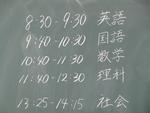 8:30-9:30 英語
9:40-10:30 国語
10:40-11:30 数学
11:40-12:30 理科
13:25-14:15 社会